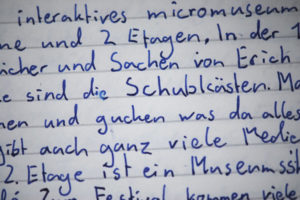 interaktives micromuseum
und 2 Etagen, In der 1
und Sachen von Erich
sind die Schubkästen. Ma
und gucken was da alles
gibt auch ganz viele Medie
2. Etage ist ein Museumssh
Festival kommen viele